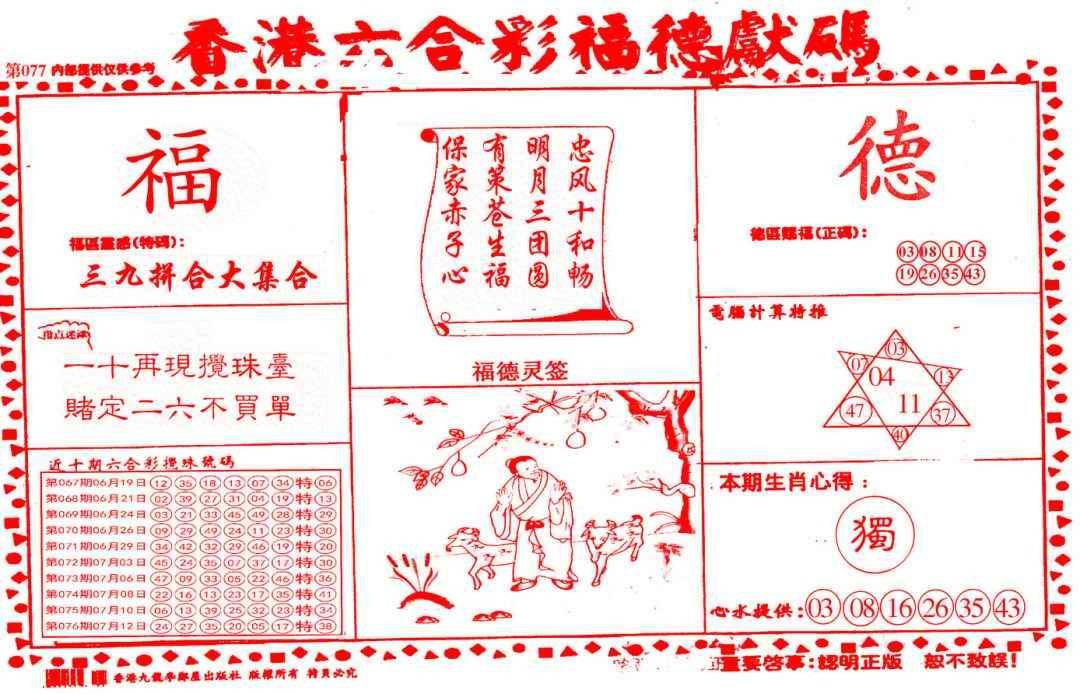 香港六合彩福德獻碼
第077 內部提供仅供参考
福
福區靈感(特碼):
三九拼合大集合
一十再現攪珠臺
賭定二六不買單
近十期六合彩攪珠號碼
第067期06月19日 12 35 18 13 07 34 特 06
第068期06月21日 02 39 27 31 04 19 特 13
第069期06月24日 03 21 33 45 49 28 特 29
第070期06月26日 09 29 49 24 11 23 特 30
第071期06月29日 34 42 32 29 46 19 特 20
第072期07月03日 45 24 35 07 37 17 特 30
第073期07月06日 47 09 33 05 22 46 特 36
第074期07月08日 22 16 13 23 17 35 特 41
第075期07月10日 06 13 39 25 32 23 特 34
第076期07月12日 24 27 35 20 05 17 特 38
忠风十和畅
明月三团圆
有策苍生福
保家赤子心
福德灵签
德
德區賜福(正碼):
03 08 11 15
19 26 35 43
電腦計算特推
03
07 04 13
47 11 37
40
本期生肖心得:
獨
心水提供:03 08 16 26 35 43
香港九龍學鄰屋出版社 版權所有 特員必究
重要啓事:認明正版 恕不致誤!